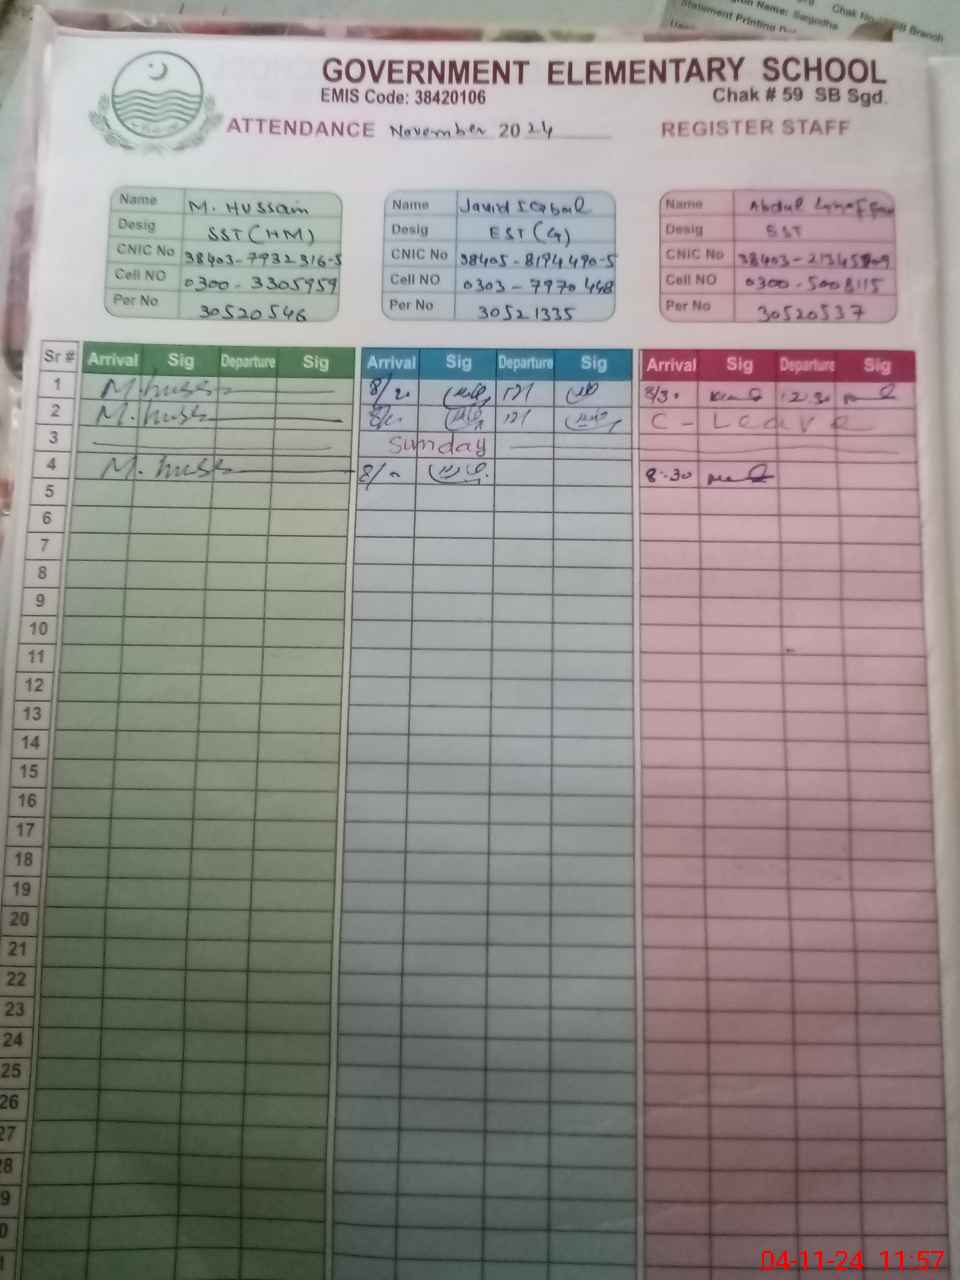 Statement Printing
Name: Sargodha
Chak No
SB Branch
GOVERNMENT ELEMENTARY SCHOOL
EMIS Code: 38420106
Chak # 59 SB Sgd.
ATTENDANCE November 2024 REGISTER STAFF
Name M. Hussain
Desig SST (HM)
CNIC No 38403-7932316-5
Cell NO 0300-3305959
Per No 30520546
Name Javid Iqbal
Desig EST (G)
CNIC No 38405-8194490-5
Cell NO 0303-7970448
Per No 30521335
Name Abdul Ghaffar
Desig SST
CNIC No
Cell NO 0300-5008115
Per No 30520537
Sr # Arrival Sig Departure Sig Arrival Sig Departure Sig Arrival Sig Departure Sig
1 M. Huss 12.30
2 M. Huss C-Leave
3 Sunday
4 M. Huss 8:30
5
6
7
8
9
10
11
12
13
14
15
16
17
18
19
20
21
22
23
24
25
26
27
28
9
0
1
04-11-24 11:57